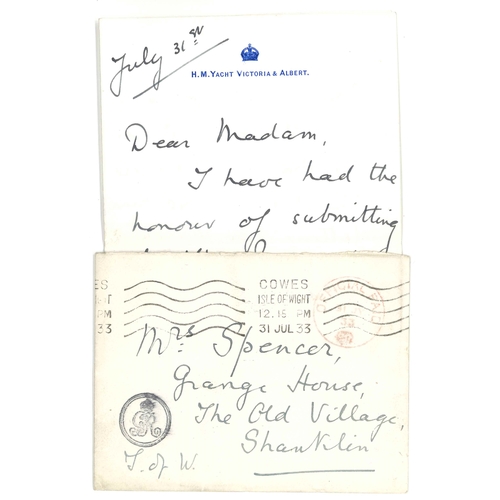 July 31st
H.M. YACHT VICTORIA & ALBERT.
Dear Madam,
I have had the
honour of submitting
ES
HT
PM
33
COWES
ISLE OF WIGHT
12.15 PM
31 JUL 33
Mrs Spencer,
Grange House,
The Old Village,
Shanklin
I. of W.